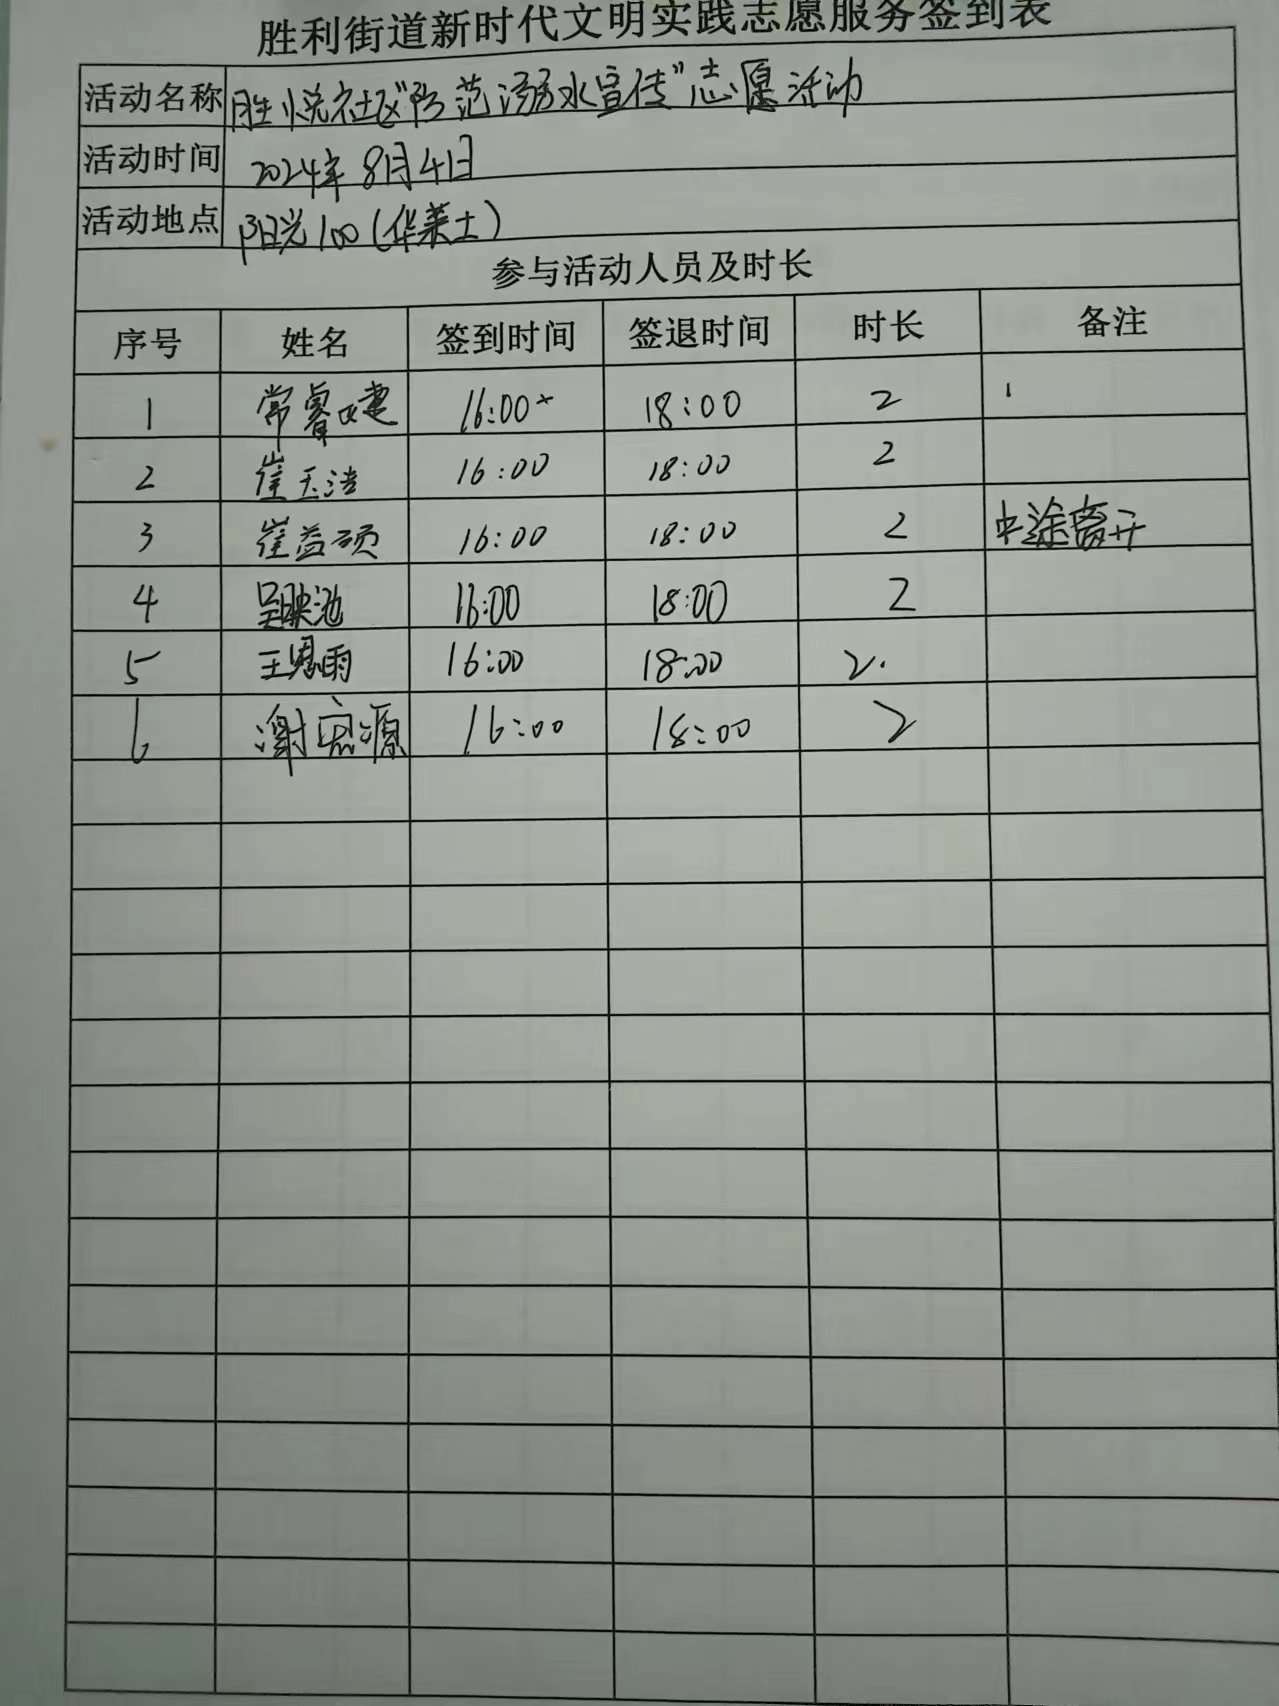 胜利街道新时代文明实践志愿服务签到表
活动名称 胜悦社区“防范溺水宣传”志愿活动
活动时间 2024年8月4日
活动地点 阳光100(华莱士)
参与活动人员及时长
序号 姓名 签到时间 签退时间 时长 备注
1 常睿婕 16:00 18:00 2
2 崔玉浩 16:00 18:00 2
3 崔益硕 16:00 18:00 2 中途离开
4 吴映池 16:00 18:00 2
5 王恩雨 16:00 18:00 2
6 谢宏源 16:00 18:00 2